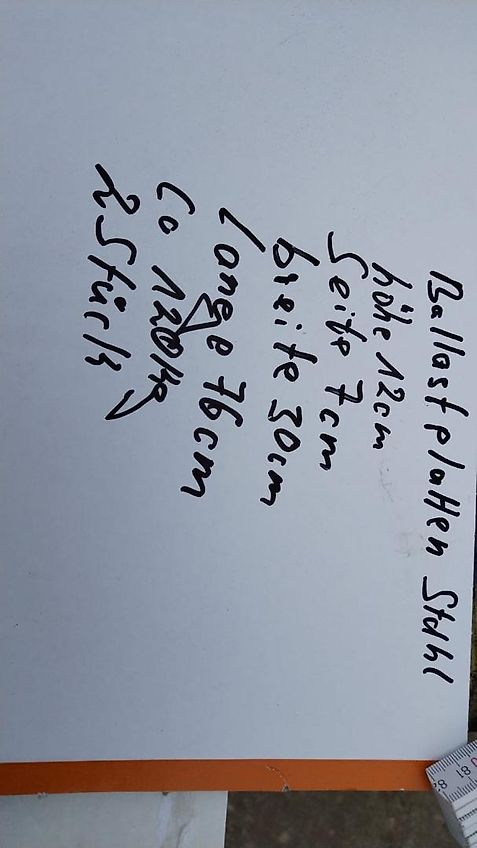 Ballastplatten Stahl
höhe 12cm
Seite 7cm
breite 30cm
Lange 76cm
Ca 120kg
2 Stück
81